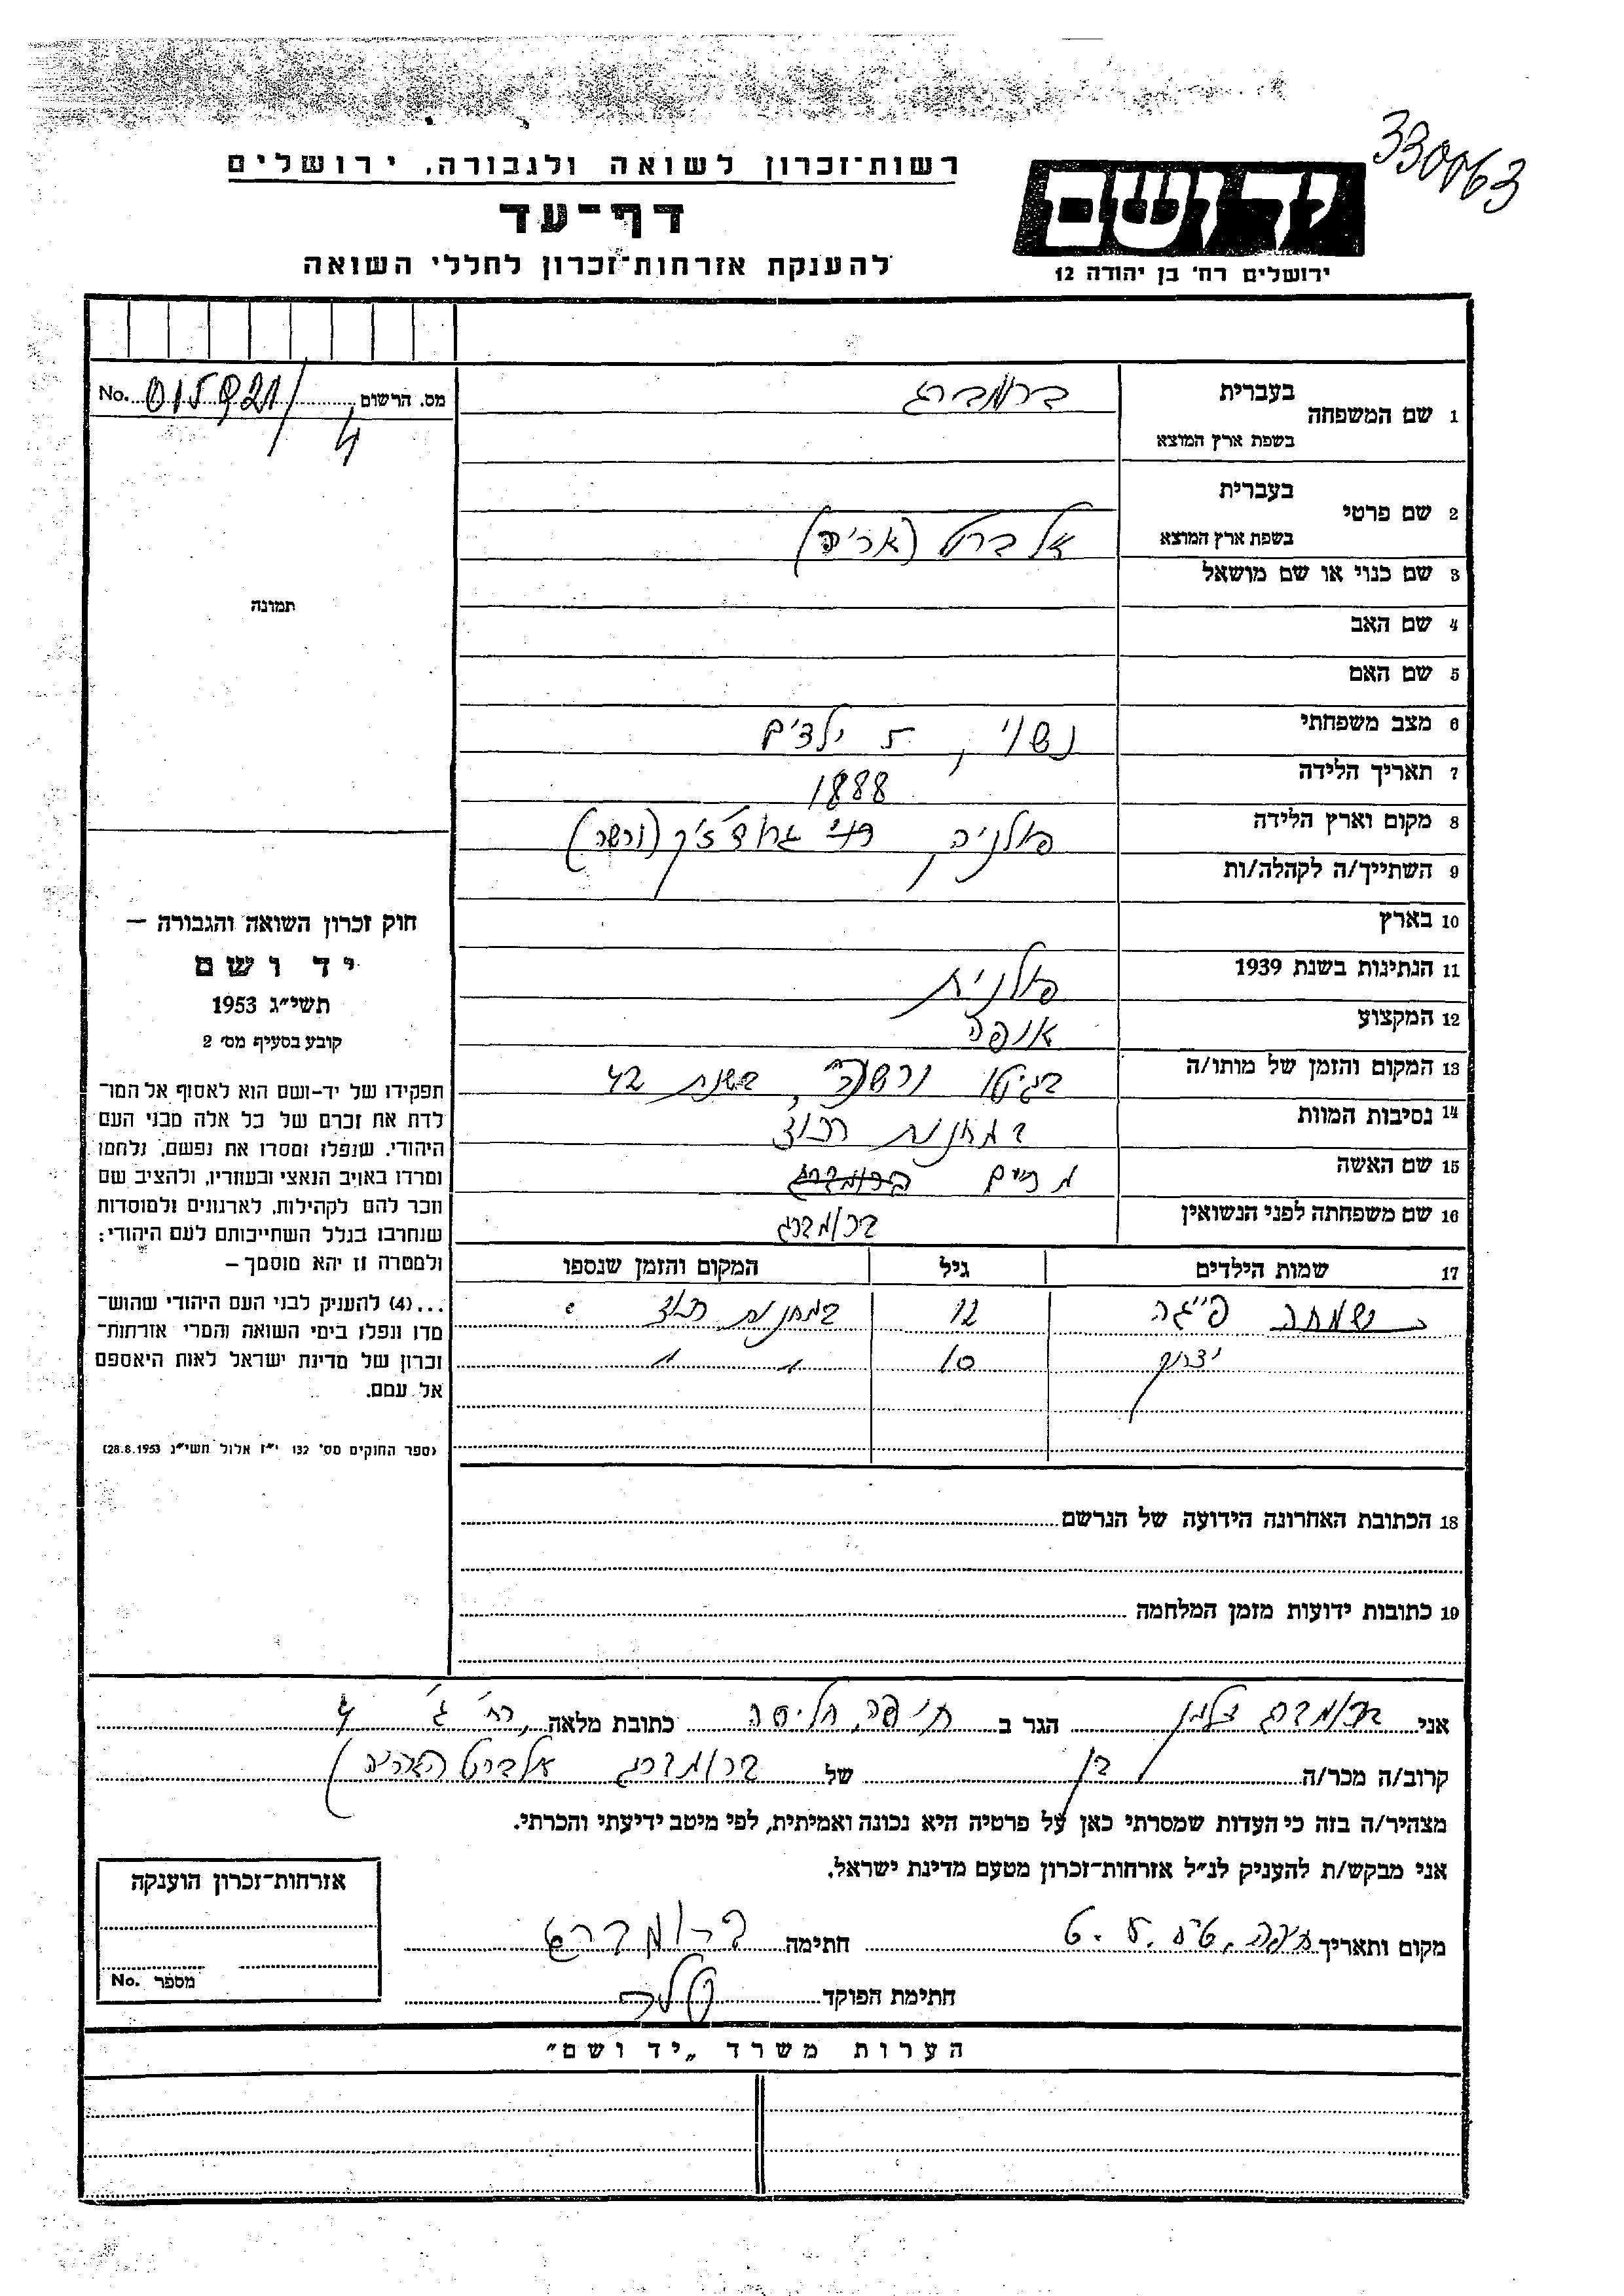 330063
רשות־זכרון לשואה ולגבורה, ירושלים
יד ושם
דף־עד
ירושלים רח' בן יהודה 12
להענקת אזרחות־זכרון לחללי השואה
מס. הרשום 015921/4 No.
1 שם המשפחה בעברית ברומברג
בשפת ארץ המוצא
2 שם פרטי בעברית
בשפת ארץ המוצא אלברט (אריה)
3 שם כנוי או שם מושאל
תמונה
4 שם האב
5 שם האם
6 מצב משפחתי נשוי, 5 ילדים
7 תאריך הלידה 1888
8 מקום וארץ הלידה פולניה, (ורשה)
9 השתייך/ה לקהלה/ות
10 בארץ
11 הנתינות בשנת 1939 פולנית
12 המקצוע אופה
13 המקום והזמן של מותו/ה בגיטו ורשה, בשנת 42
14 נסיבות המוות במחנות
15 שם האשה מרים ברומברג
16 שם משפחתה לפני הנשואין ברומברג
17 שמות הילדים גיל המקום והזמן שנספו
שמחה פייגה 12 במחנות
יצחק 10 " "
חוק זכרון השואה והגבורה –
יד ושם
תשי"ג 1953
קובע בסעיף מס' 2
תפקידו של יד-ושם הוא לאסוף אל המו־
לדת את זכרם של כל אלה מבני העם
היהודי, שנפלו ומסרו את נפשם, נלחמו
ומרדו באויב הנאצי ובעוזריו, ולהציב שם
וזכר להם לקהילות, לארגונים ולמוסדות
שנחרבו בגלל השתייכותם לעם היהודי;
ולמטרה זו יהא מוסמך –
...(4) להעניק לבני העם היהודי שהוש־
מדו ונפלו בימי השואה והמרי אזרחות־
זכרון של מדינת ישראל לאות היאספם
אל עמם.
(ספר החוקים מס' 132 י"ז אלול תשי"ג 28.8.1953)
18 הכתובת האחרונה הידועה של הנרשם
19 כתובות ידועות מזמן המלחמה
אני ברומברג זלמן הגר ב חיפה, חליסה כתובת מלאה רח' ג' 4
קרוב/ה מכר/ה בן של ברומברג אלברט (אריה)
מצהיר/ה בזה כי העדות שמסרתי כאן על פרטיה היא נכונה ואמיתית, לפי מיטב ידיעתי והכרתי.
אני מבקש/ת להעניק לנ"ל אזרחות־זכרון מטעם מדינת ישראל.
מקום ותאריך חיפה, חתימה ברומברג
חתימת הפוקד
אזרחות־זכרון הוענקה
מספר No.
הערות משרד „יד ושם"